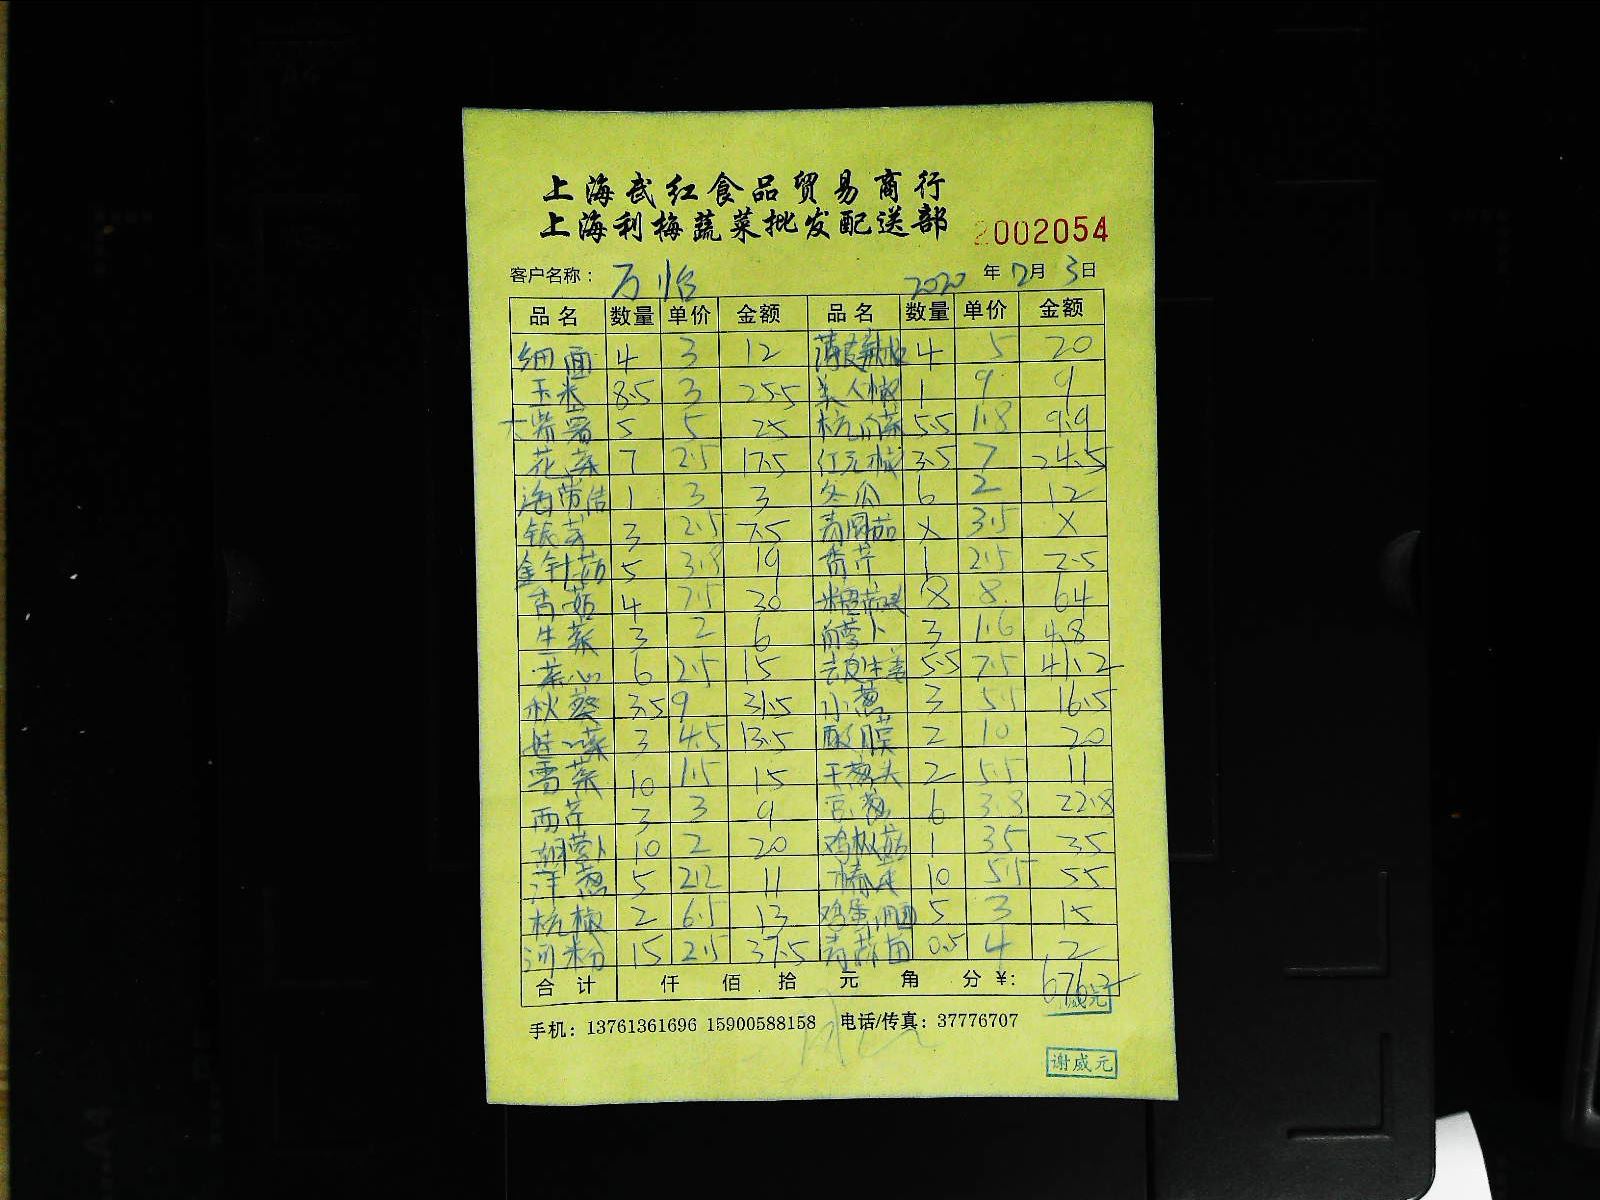 上海武红食品贸易商行
上海利梅蔬菜批发配送部
2002054
客户名称： 万怡 2020 年 7月 3日
品名 数量 单价 金额 品名 数量 单价 金额
细面 4 3 12 薄皮辣椒 4 5 20
玉米 8.5 3 25.5 美人椒 1 9 9
大紫署 5 5 25 杭白菜 5.5 1.8 9.9
花菜 7 2.5 17.5 红元椒 3.5 7 24.5
海带结 1 3 3 冬瓜 6 2 12
银芽 3 2.5 7.5 青圆茄 X 3.5 X
金针菇 5 3.8 19 香芹 1 2.5 2.5
香菇 4 7.5 30 糖蒜 8 8 64
生菜 3 2 6 白萝卜 3 1.6 4.8
菜心 6 2.5 15 去皮生姜 5.5 7.5 41.2
秋葵 3.5 9 31.5 小葱 3 5.5 16.5
娃娃菜 3 4.5 13.5 酸膜 2 10 20
雪菜 10 1.5 15 干葱头 2 5.5 11
西芹 3 3 9 京葱 6 3.8 22.8
胡萝卜 10 2 20 鸡枞菇 1 35 35
洋葱 5 2.2 11 10 5.5 55
杭椒 2 6.5 13 鸡蛋面 5 3 15
河粉 15 2.5 37.5 青蒜苗 0.5 4 2
合计 仟 佰 拾 元 角 分 ¥: 676.2
手机：13761361696 15900588158 电话/传真：37776707
谢咸元